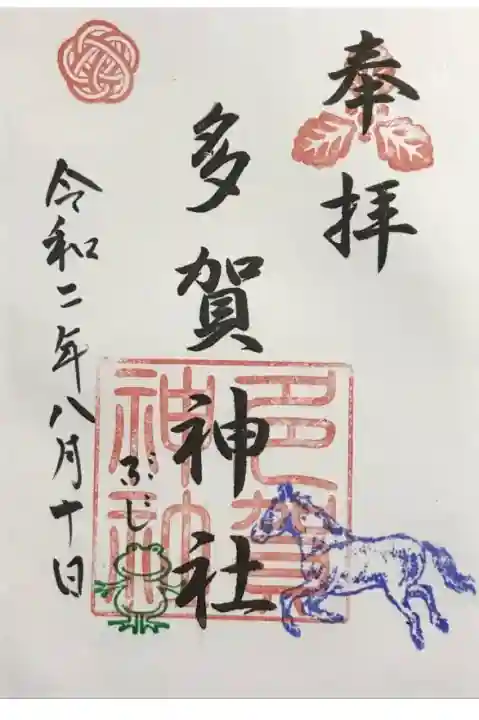 奉拝
多賀神社
多賀
神社
ぶじ
令和二年八月十日